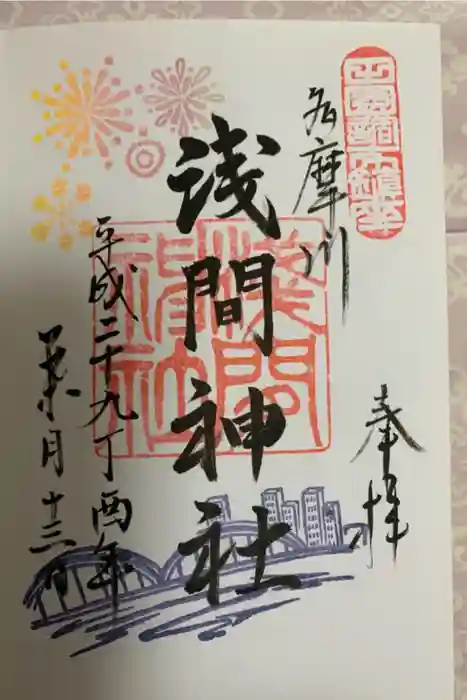 多摩川
奉拝
浅間神社
平成二十九丁酉年
葉月十三日
浅間神社